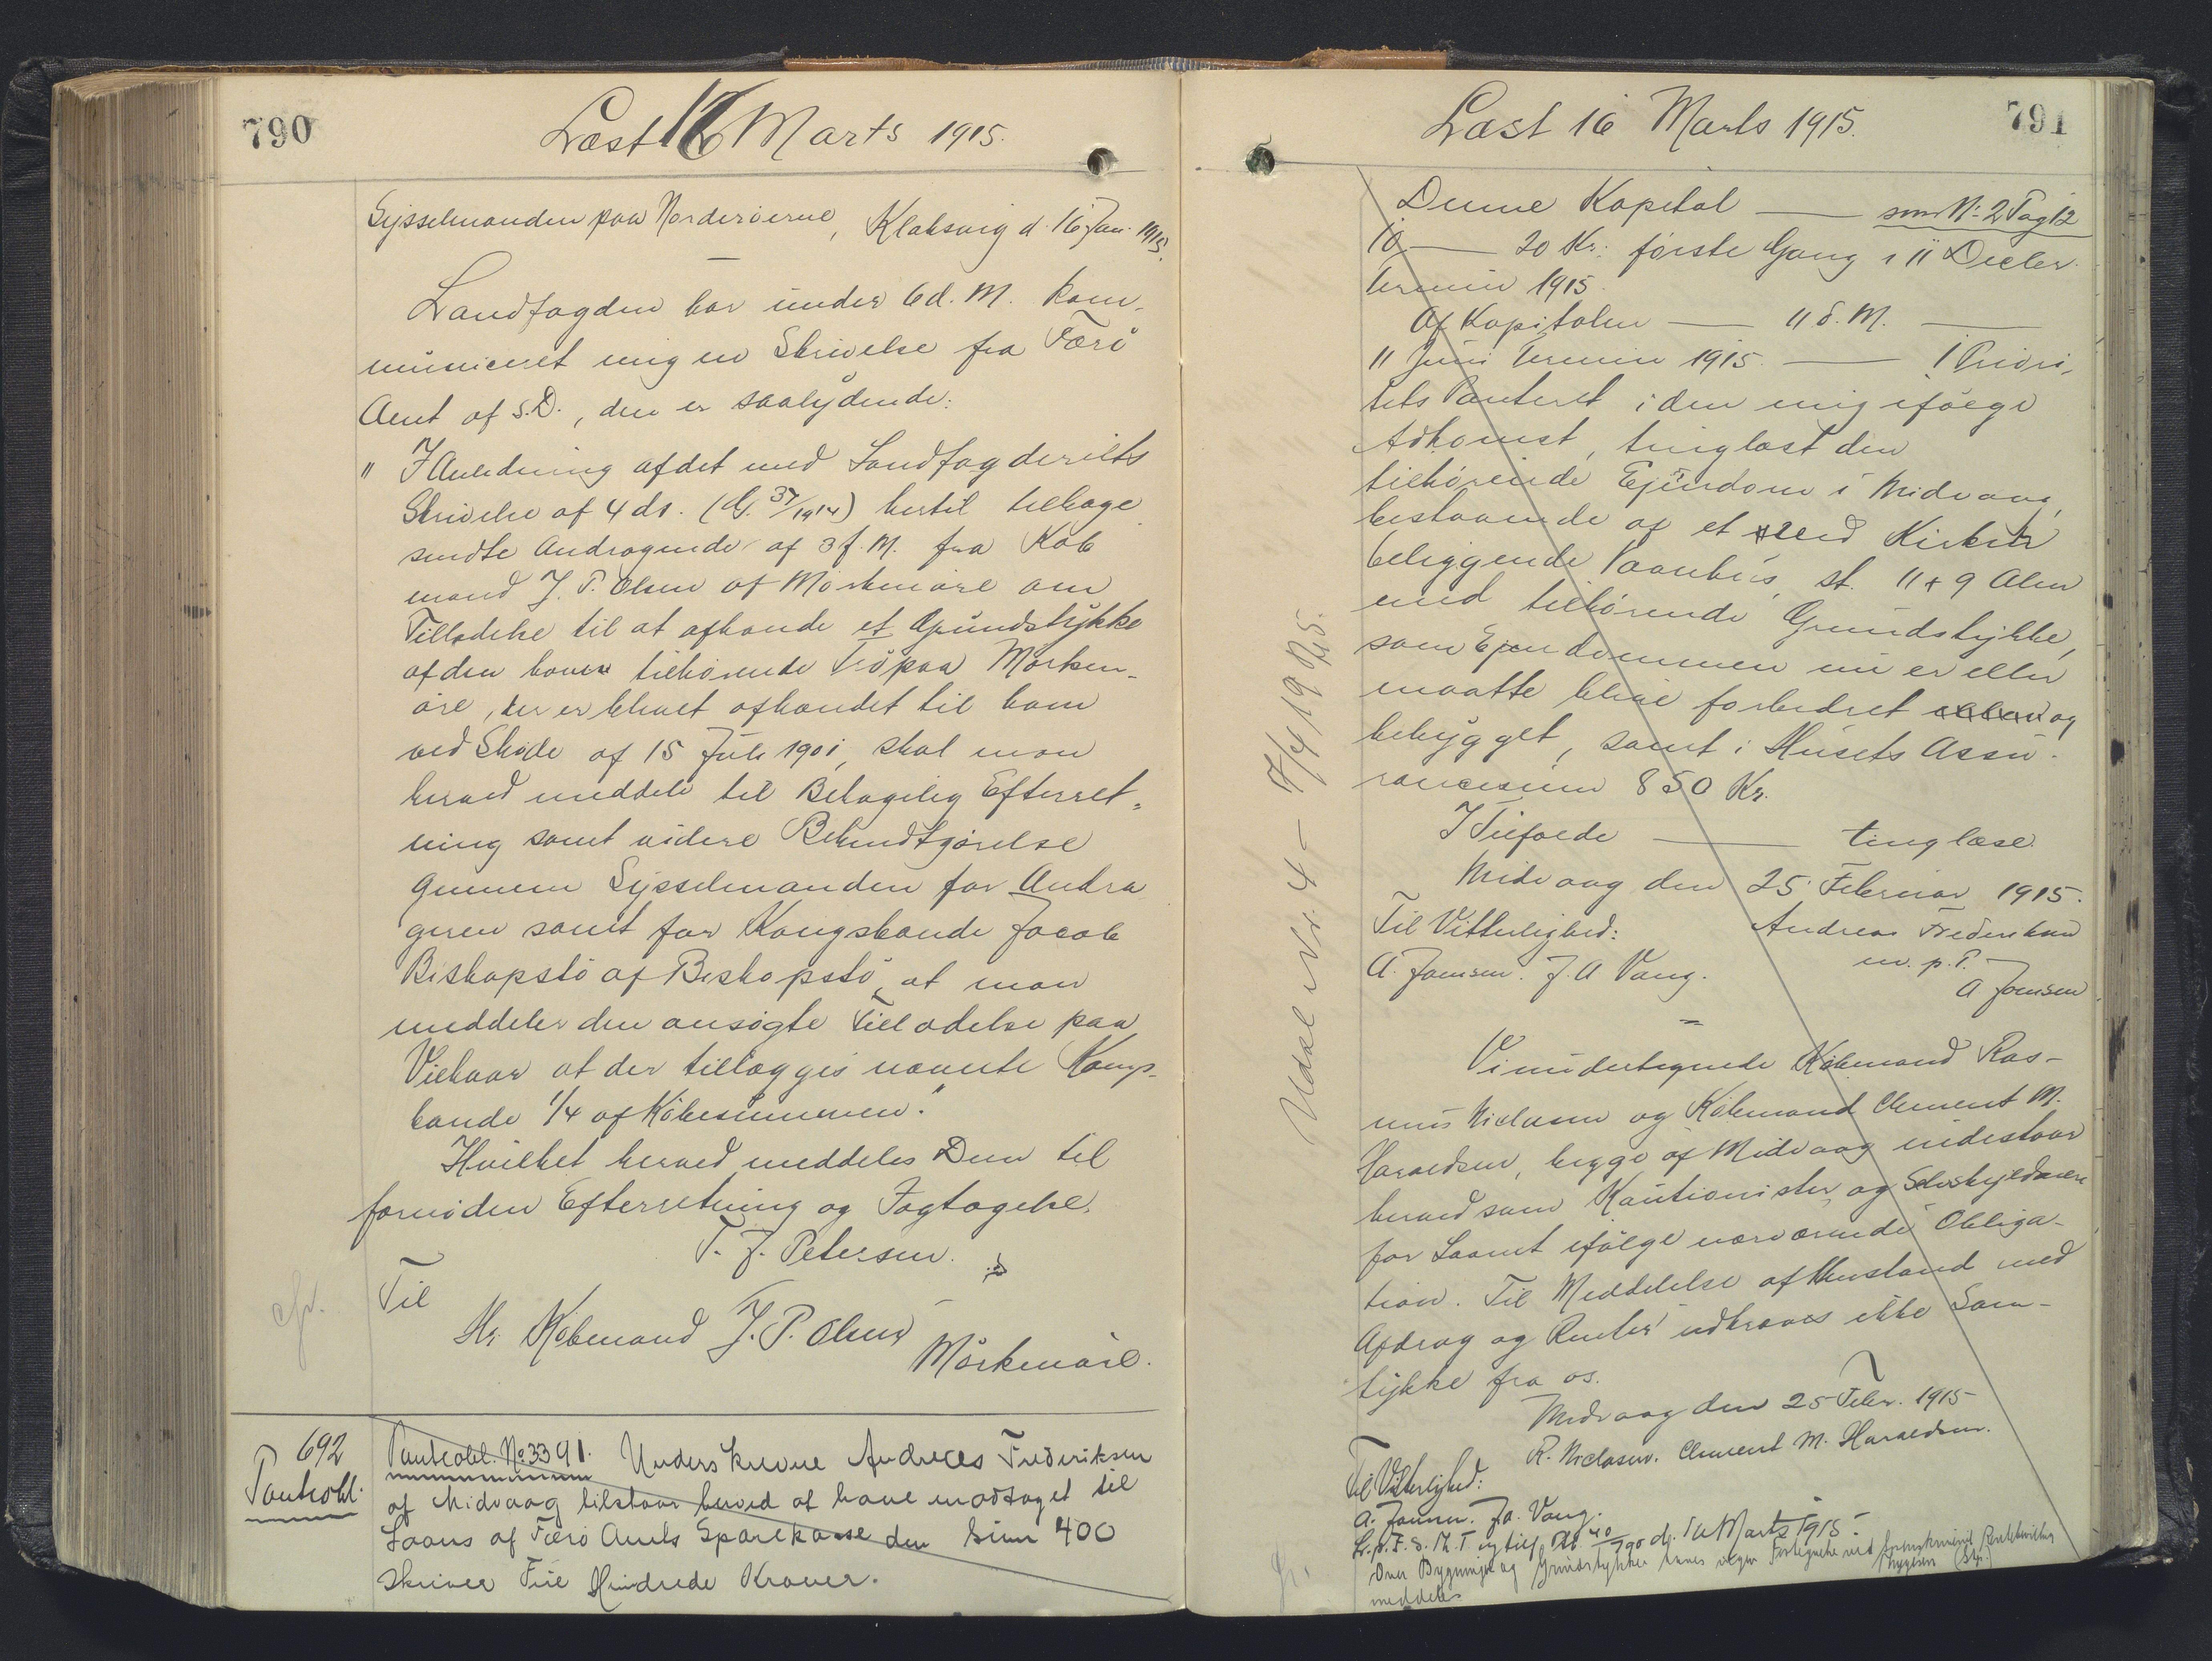 790
Læst 16 Marts 1915.
Sysselmanden paa Norderøerne, Klaksvig d. 16 Jan. 1915.
Landfogden har under 6 d. M. kom-
municeret mig en Skrivelse fra Færø
Amt af s. D., der er saalydende:
" I Anledning af det med Landfogderiets
Skrivelse af 4 ds. (G. 37/1914) hertil tilbage
sendte Andragende af 3 f. M. fra Køb
mand J. P. Olsen af Mørkenøre om
Tilladelse til at afhænde et Grundstykke
af den ham tilhørende Trø paa Mørken-
øre, der er blevet afhændet til ham
ved Skøde af 15 Juli 1901, skal man
herved meddele til Behagelig Efterret-
ning samt videre Bekendtgørelse
gennem Sysselmanden for Andra
geren samt for Kongsbonde Jacob
Biskopstø af Biskopstø, at man
meddeler den ansøgte Tilladelse paa
Vilkaar at der tillægges nævnte Kongs-
bonde 1/4 af Købesummen."
Hvilket herved meddeles Dem til
fornøden Efterretning og Iagttagelse.
T. J. Petersen.
Til
Hr. Købmand J. P. Olsen
Mørkenøre.
692
Panteobl.
Panteobl. No 3391. Underskrevne Andreas Frederiksen
af Midvaag tilstaar herved at have modtaget til
Laans af Færø Amts Sparekasse den Sum 400
skriver Fire Hundrede Kroner.
791
Læst 16 Marts 1915.
Denne Kapital — som No 2 Pag 12
10 — 20 Kr. første Gang i 11 Decbr.
Termin 1915.
Af Kapitalen — 11 d. M. —
11 Juni Termin 1915. — I Priori-
tets Panteret i den mig ifølge
Adkomst, tinglæst den
tilhørende Ejendom i Midvaag,
bestaaende af et ved Kirken
beliggende Vaanhus, st. 11 x 9 Alen
med tilhørende Grundstykke,
som Ejendommen nu er eller
maatte blive forbedret og
bebygget, samt i Husets Assu-
rancesum 850 Kr.
I Tilfælde — tinglæse.
Midvaag den 25 Februar 1915.
Til Vitterlighed: Andreas Frederiksen
A. Joensen. J. A Vang. m. p. P.
A Joensen
Vi undertegnede Købmand Ras-
mus Niclasen og Købmand Clement M.
Haraldsen, begge af Midvaag indestaar
herved som Kautionister og Selvskyldnere
for Laanet ifølge nærværende Obliga-
tion. Til Meddelelse af Henstand med
Afdrag og Renter udkræves ikke Sam-
tykke fra os.
Midvaag den 25 Febr. 1915
R. Niclasen. Clement M. Haraldsen.
Til Vitterlighed:
A. Joensen. Ja. Vang.
Over Bygninger og Grundstykker
meddeles
Udsl Nr. 4 – 7/4 19